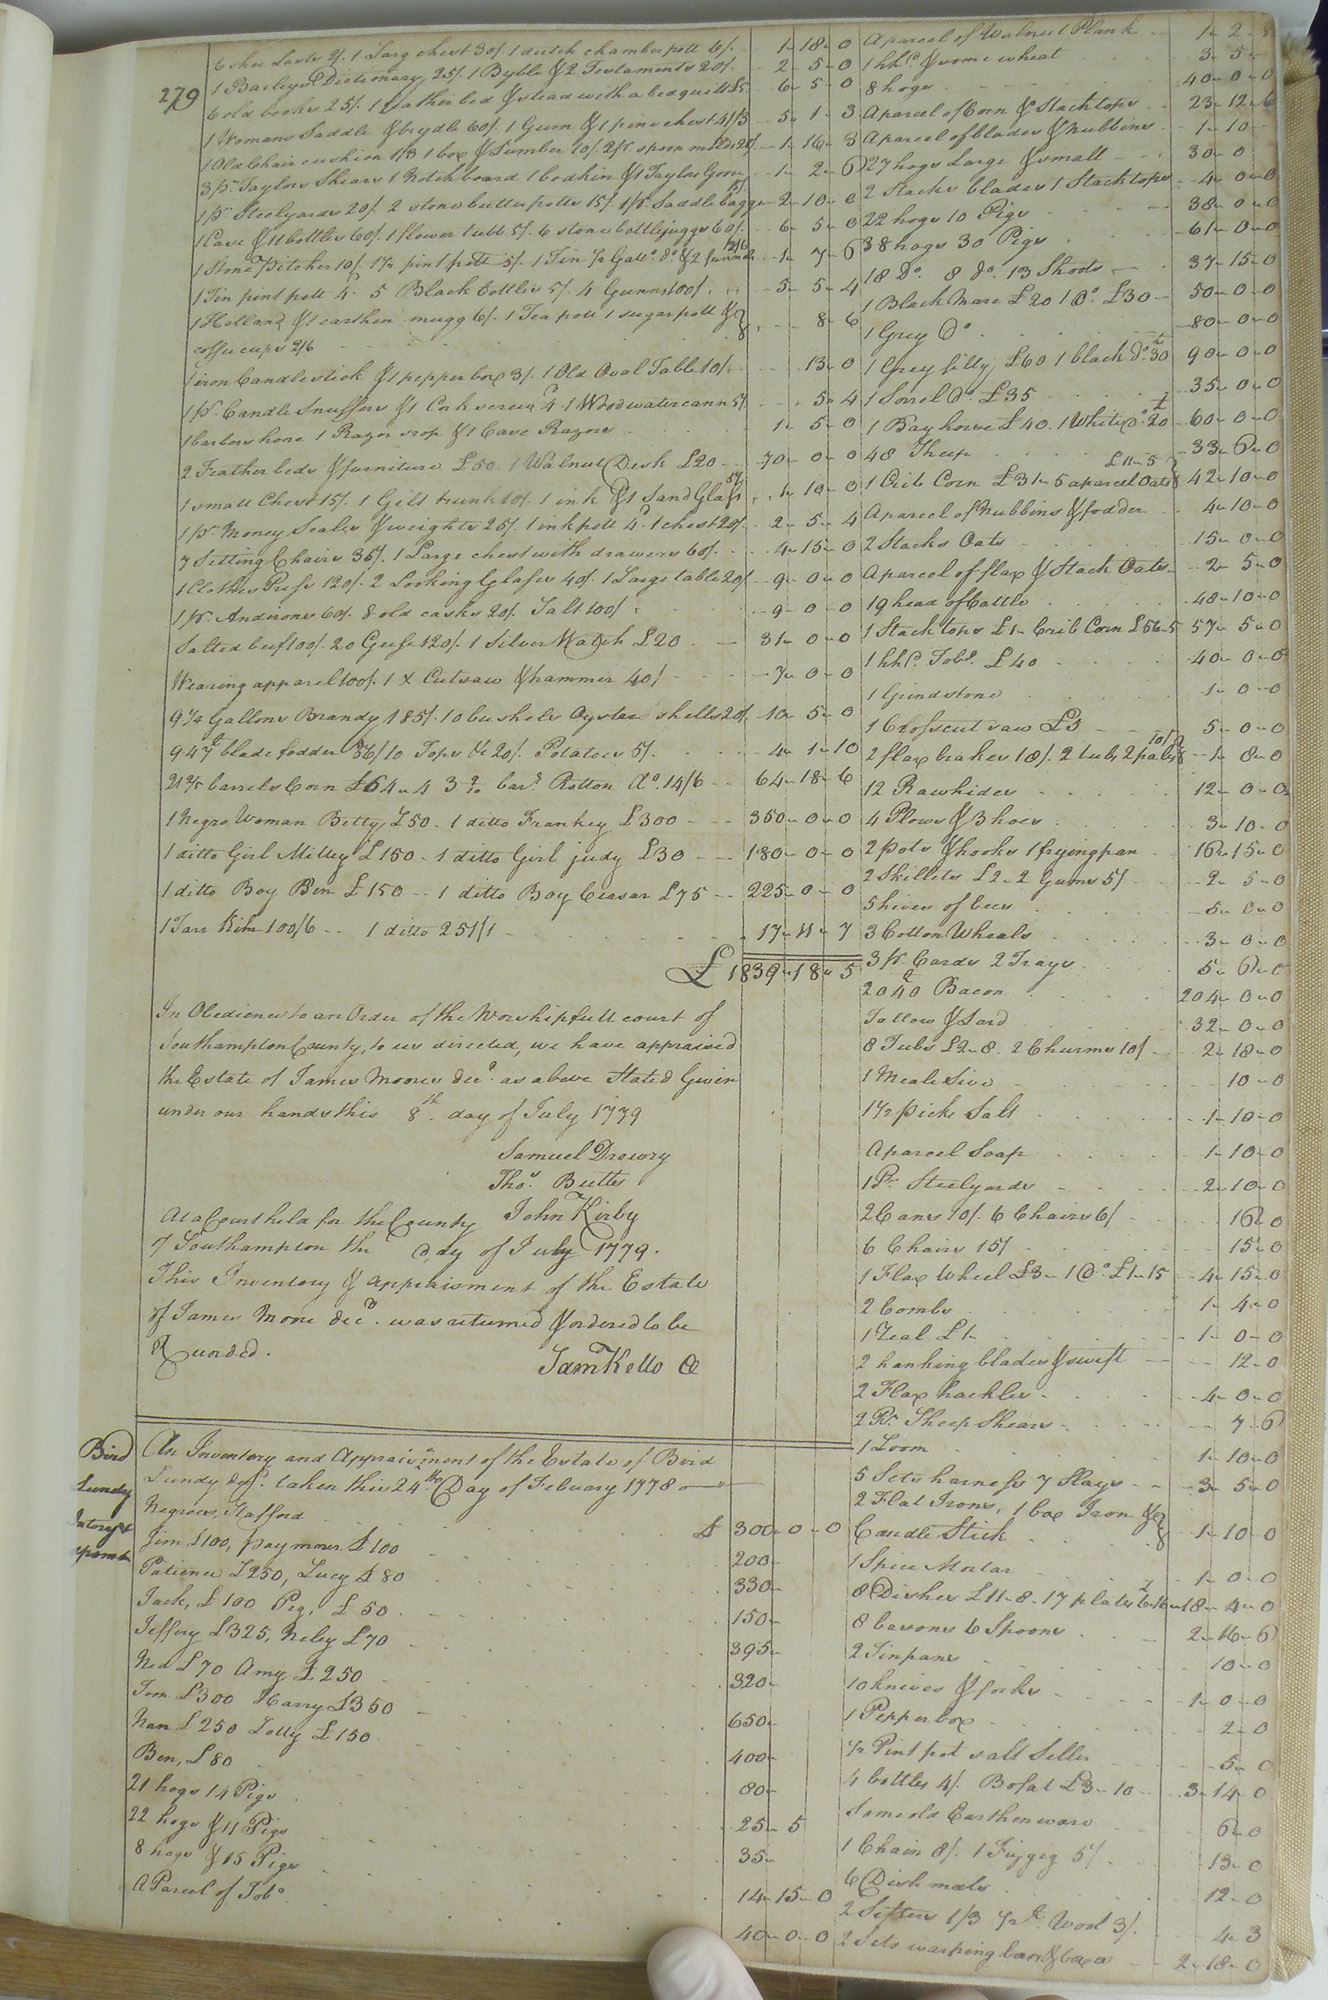 279
6 shoe Lasts 2/. 1 Larg chest 30/. 1 dutch chamber pott 6/. 1-18-0
1 Baileys Dictionary 25/. 1 Byble & 2 Testaments 20/. 2-5-0
6 old books 25/. 1 Feather bed & stead with a bed quilt £5 6-5-0
1 Womans Saddle & brydle 60/. 1 Gun & 1 pine chest 41/3 5-1-3
1 Old Chair cushion 1/3 1 box & Lumber 10/. 2 pr. spoon molds 25/. 1-16-3
3 pr. Taylors Shears 1 Notchboard 1 bodkin & 1 Taylors Goose 1-2-6
1 pr. Steelyards 20/. 2 stone butter potts 15/. 1 pr. Saddle baggs 15/. 2-10-0
1 Case & 11 bottles 60/. 1 flower tubb 5/. 6 stone bottle juggs 60/. 6-5-0
1 Stone Pitcher 10/. 1 ½ pint pott 5/. 1 Tin ½ Gallo. do. & 2 funnels 12/6 1-7-6
1 Tin pint pott 4d. 5 Black bottles 5/. 4 Gunns 100/. 5-5-4
1 Holland & 1 earthen mugg 6/. 1 Tea pott 1 sugar pott &
coffe cups 2/6 8-6
1 iron Candlestick & 1 pepper box 3/. 1 Old Oval Table 10/. 13-0
1 pr. Candle Snuffers & 1 Cork screw 4d. 1 Wood water cann 5/. 5-4
1 barbers hone 1 Razor strop & 1 Case Razors 1-5-0
2 Feather beds & furniture £50. 1 Walnut Desk £20 70-0-0
1 small Chest 15/. 1 Gilt trunk 10/. 1 ink & 1 Sand Glass 5/. 1-10-0
1 pr. Money Scales & weights 25/. 1 inkpott 4d. 1 chest 20/. 2-5-4
7 Setting Chairs 35/. 1 Large chest with drawers 60/. 4-15-0
1 Clothes Press 120/. 2 Looking Glases 40/. 1 Large table 20/. 9-0-0
1 pr. Andirons 60/. 8 old casks 20/. Salt 100/. 9-0-0
Salted beef 100/. 20 Geese 120/. 1 Silver Watch £20 31-0-0
Wearing apparel 100/. 1 X Cutsaw & hammer 40/ 7-0-0
9¼ Gallons Brandy 185/. 10 bushels Oyster shells 20/. 10-5-0
947 blade fodder 56/10 Tops &c 20/. Potatoes 5/. 4-1-10
barrels Corn £64-4 3 bars. Rotton do. 14/6 64-18-6
1 Negro Woman Betty £50. 1 ditto Frankey £300 350-0-0
1 ditto Girl Milley £150. 1 ditto Girl judy £30 180-0-0
1 ditto Boy Ben £150 .. 1 ditto Boy Ceasar £75 225-0-0
1 Tarr Kiln 100/6 .. 1 ditto 251/1 17-11-7
£ 1839-18-5
In Obedience to an Order of the Worshipfull court of
Southampton County, to us directed, we have appraised
the Estate of James Moore decd. as above Stated Given
under our hands this 8th. day of July 1779
Samuel Drewry
Thos. Butts
John Kirby
At a Court held for the County
of Southampton the 8 day of July 1779.
This Inventory & appraisment of the Estate
of James Moore decd. was returned & ordered to be
Recorded.
Sam Kello Cl
Bird
Lundy
An Inventory and Appraisment of the Estate of Bird
Lundy decd. taken this 24th Day of Febuary 1778
Negroes, Stafford £ 300-0-0
Jim £100, Paymour £100 200-
Patience £250, Lucy £80 330-
Jack, £100 Peg, £50 150-
Jeffery £325, Neley £70 395-
Ned £70 Amy £250 320-
Tom £300 Harry £350 650-
Nan £250 Lotty £150 400-
Ben, £80 80-
21 hogs 14 Pigs 25-5
22 hogs & 11 Pigs 35-
8 hogs & 15 Pigs 14-15-0
A Parcel of Tobo. 40-0-0
A parcel of Walnut Plank 1-2-8
1 hhd. & some wheat 3-5-
8 hogs 40-0-0
A parcel of Corn & Stack tops 23-12-6
A parcel of blades & Nubbins 1-10-
27 hogs Large & small 30-0
2 Stacks blades 1 Stack tops 4-0-0
22 hogs 10 Pigs 38-0-0
38 hogs 30 Pigs 61-0-0
18 do. 8 do. 13 Shoots 37-15-0
1 Black Mare £20 1 do. £30 50-0-0
1 Grey do 80-0-0
1 Grey filly, £60 1 black do. £30 90-0-0
1 Sorrel do. £35 35-0-0
1 Bay horse £40. 1 White do. £20 60-0-0
48 Sheep 33-6-0
1 Crib Corn £31-5 a parcel Oats £11-5 42-10-0
A parcel of Nubbins & fodder 4-10-0
2 Stacks Oats 15-0-0
A parcel of flax & Stack Oats 2-5-0
19 head of Cattle 48-10-0
1 Stack tops £1- Crib Corn £56-5 57-5-0
1 hhd. Tobo. £40 40-0-0
1 Grindstone 1-0-0
1 Crosscut saw £5 5-0-0
2 flax brakes 18/. 2 tubs 2 pails 10/ 1-8-0
12 Rawhides 12-0-0
4 Plows & 3 hoes 3-10-0
2 pots & hooks 1 frying pan 16-15-0
2 Skillets £2-2 Gums 5/ 2-5-0
5 hives of bees 5-0-0
3 Cotton Wheals 3-0-0
3 pr. Cards 2 Trays 5-6-0
2040 Bacon 204-0-0
Tallow & Lard 32-0-0
8 Tubs £2-8. 2 Churms 10/ 2-18-0
1 Meale Sive 10-0
1½ pecks Salt 1-10-0
A parcel Soap 1-10-0
1 Pr. Steelyards 2-10-0
2 Cans 10/. 6 Chairs 6/ 16-0
6 Chairs 15/ 15-0
1 Flax Wheel £3- 1 do. £1-15 4-15-0
2 Combs 1-4-0
1 Teal £1- 1-0-0
2 hanking blades & swift 12-0
2 Flax hackles 4-0-0
2 Pr. Sheep Shears 7-6
1 Loom 1-10-0
5 Sets harness 7 Slays 3-5-0
2 Flat Irons, 1 box Iron &
Candle Stick 1-10-0
1 Spice Mortar 1-0-0
8 Dishes £11-8. 17 plates £6-16 18-4-0
8 basons 6 Spoons 2-16-6
2 Tinpans 10-0
10 knives & forks 1-0-0
1 Pepperbox 2-0
½ Pint pot salt Seller 5-0
4 bottles 4/. Bofat £3-10 3-14-0
Some old Earthenware 6-0
1 Chain 8/. 1 Fizgeg 5/ 13-0
6 Dish mats 12-0
2 Sifters 1/3 Wool 3/. 4-3
2 Sets warping bars & boxes 2-18-0